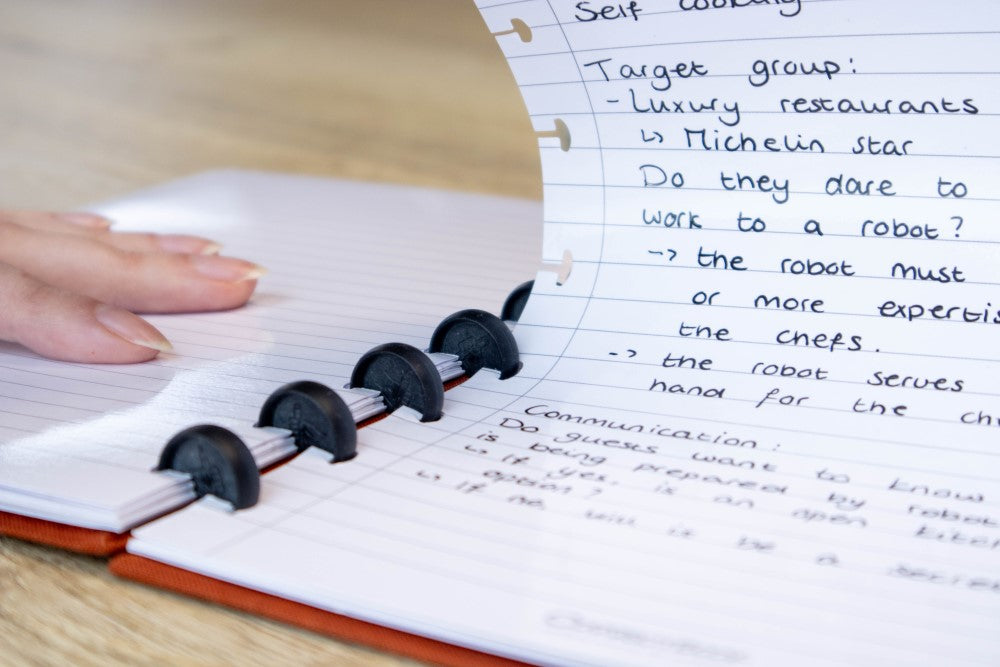 Self cooking
Target group:
- Luxury restaurants
↳ Michelin star
Do they dare to
work to a robot?
-> the robot must
or more expertis
the chefs.
-> the robot serves
hand for the ch
Communication:
Do guests want to know
is being prepared by robot
↳ If yes, is an open kitch
option?
↳ If no will is be a secre